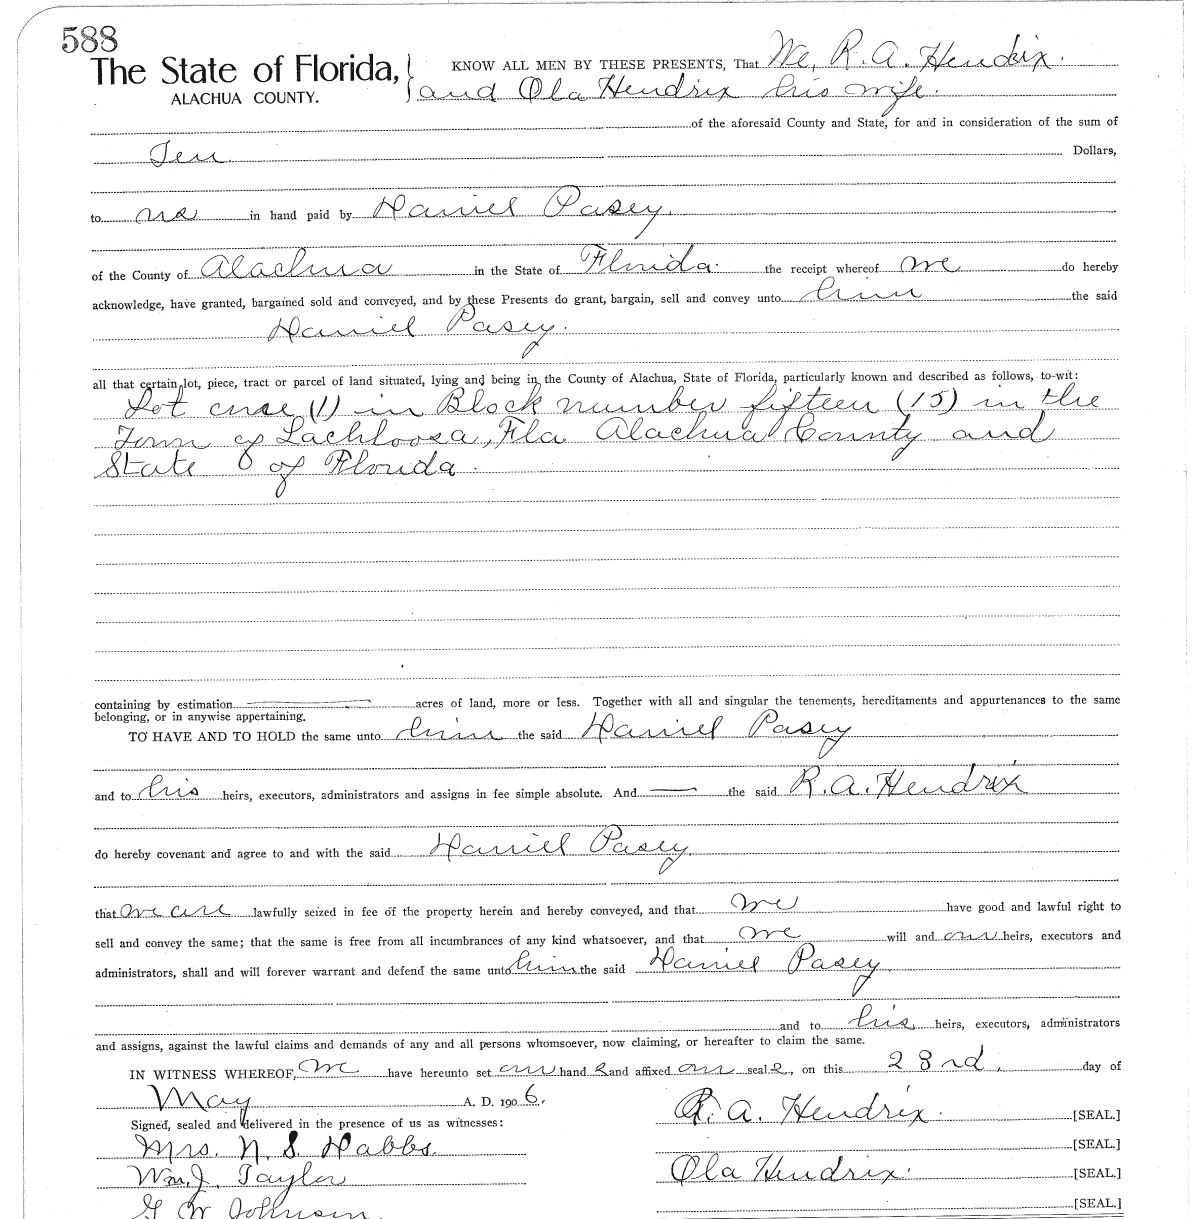 588
The State of Florida, KNOW ALL MEN BY THESE PRESENTS, That We, R. A. Hendrix
ALACHUA COUNTY. and Ola Hendrix his wife.
of the aforesaid County and State, for and in consideration of the sum of
Ten Dollars,
to us in hand paid by Daniel Pasey.
of the County of Alachua in the State of Florida. the receipt whereof we do hereby
acknowledge, have granted, bargained sold and conveyed, and by these Presents do grant, bargain, sell and convey unto him the said
Daniel Pasey.
all that certain lot, piece, tract or parcel of land situated, lying and being in the County of Alachua, State of Florida, particularly known and described as follows, to-wit:
Lot one (1) in Block number fifteen (15) in the
Town of Lochloosa, Fla Alachua County and
State of Florida.
containing by estimation acres of land, more or less. Together with all and singular the tenements, hereditaments and appurtenances to the same
belonging, or in anywise appertaining.
TO HAVE AND TO HOLD the same unto him the said Daniel Pasey
and to his heirs, executors, administrators and assigns in fee simple absolute. And — the said R. A. Hendrix
do hereby covenant and agree to and with the said Daniel Pasey
that we are lawfully seized in fee of the property herein and hereby conveyed, and that we have good and lawful right to
sell and convey the same; that the same is free from all incumbrances of any kind whatsoever, and that we will and our heirs, executors and
administrators, shall and will forever warrant and defend the same unto him the said Daniel Pasey.
and to his heirs, executors, administrators
and assigns, against the lawful claims and demands of any and all persons whomsoever, now claiming, or hereafter to claim the same.
IN WITNESS WHEREOF, We have hereunto set our hand s and affixed our seal s, on this 23rd. day of
May A. D. 1906.
Signed, sealed and delivered in the presence of us as witnesses: R. A. Hendrix. [SEAL.]
Mrs. N. S. Habbs. [SEAL.]
Wm. J. Taylor Ola Hendrix. [SEAL.]
G W Johnson. [SEAL.]